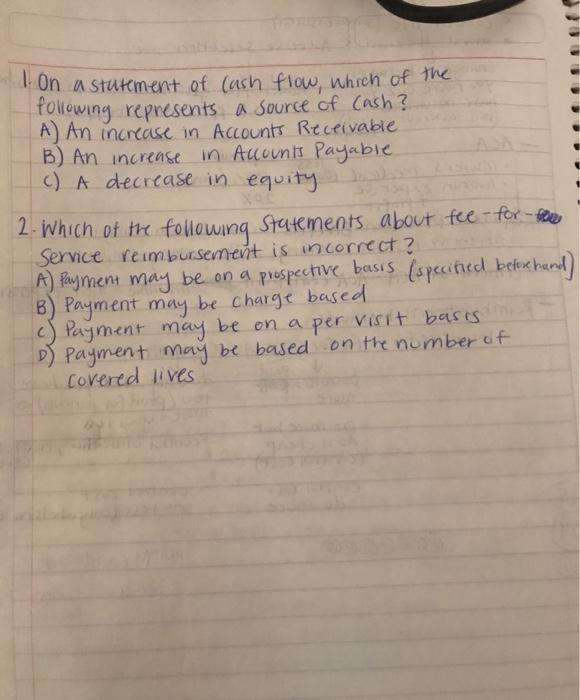 1. On a statement of cash flow, which of the
following represents a source of cash?
A) An increase in Accounts Receivable
B) An increase in Accounts Payable
C) A decrease in equity
2. Which of the following statements about fee-for-
Service reimbursement is incorrect?
A) Payment may be on a prospective basis (specified beforehand)
B) Payment may be charge based
C) Payment may be on a per visit basis
D) Payment may be based on the number of
covered lives